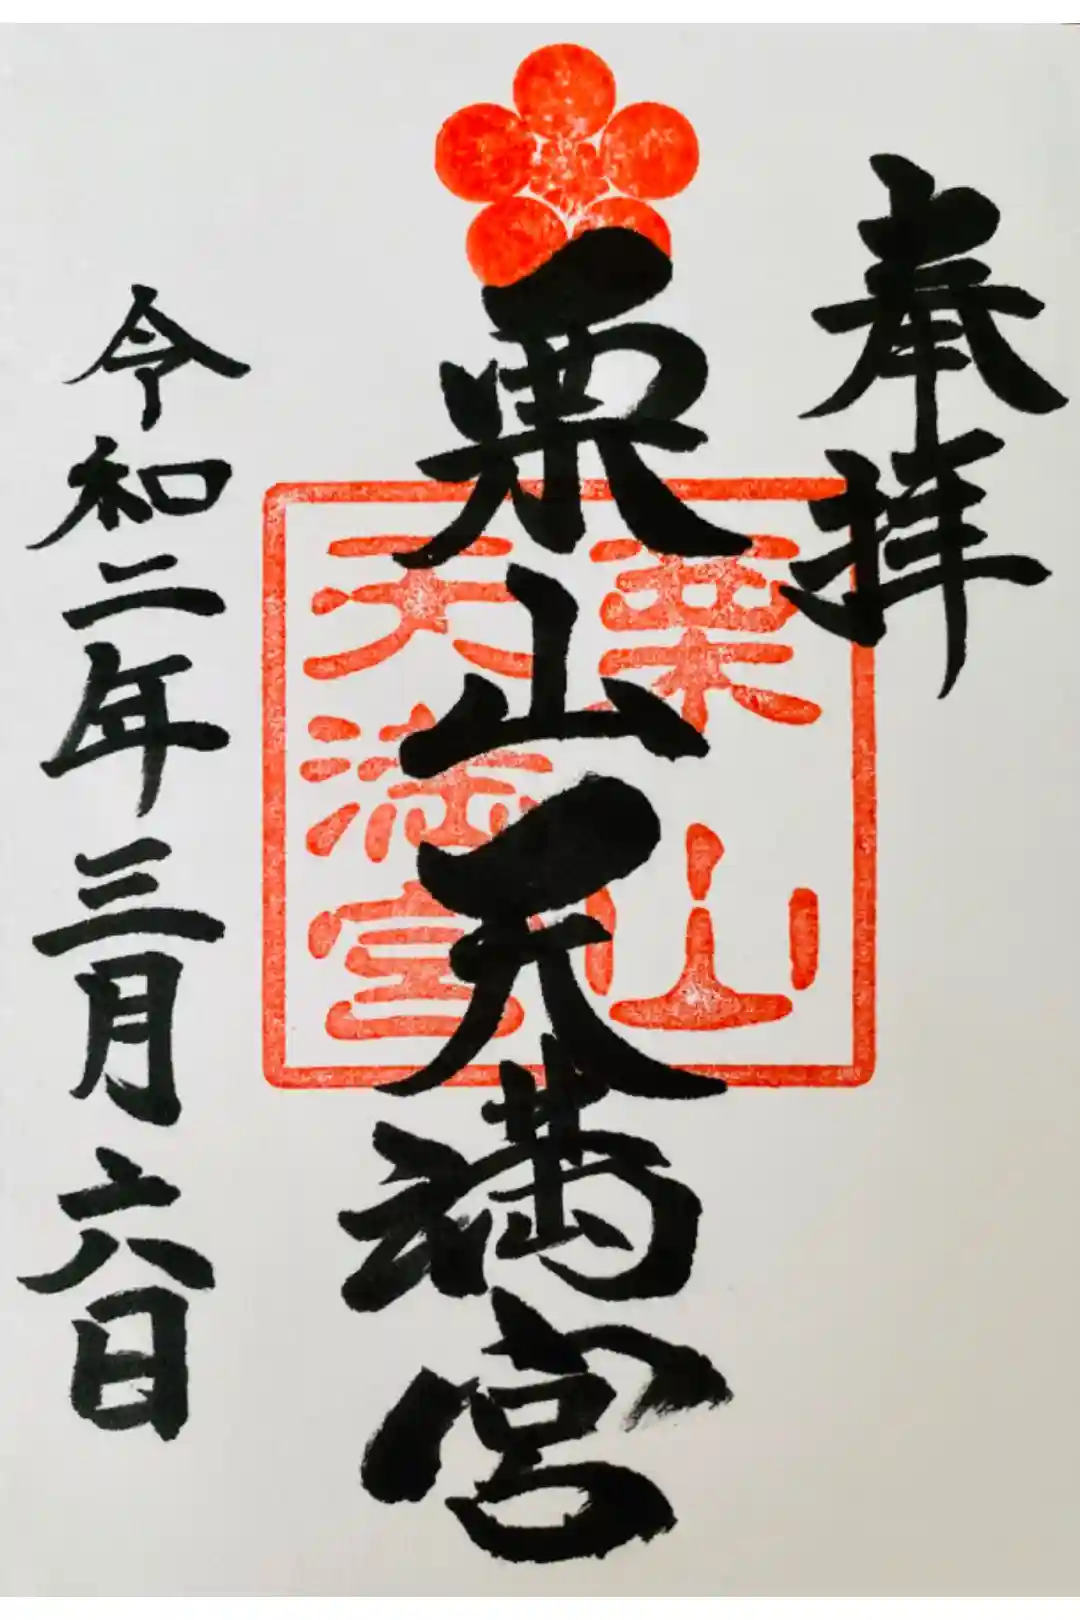 奉拝
栗山天満宮
令和二年三月六日
栗山
天満宮